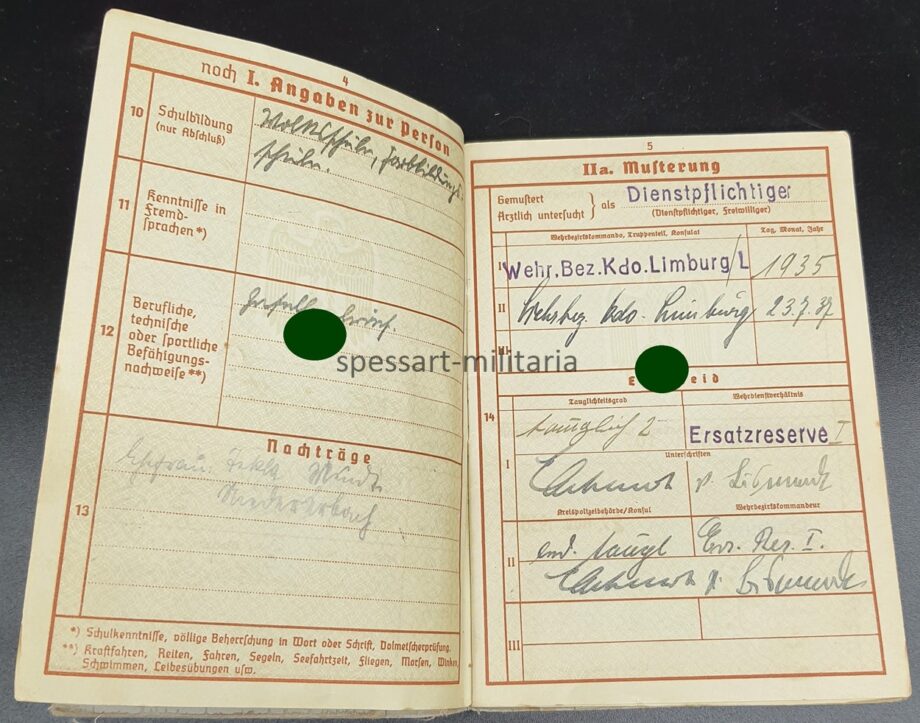 4
noch I. Angaben zur Person
10
Schulbildung
(nur Abschluß)
Volksschule, Fortbildungs
schule.
11
Kenntnisse in
Fremd-
sprachen*)
12
Berufliche,
technische
oder sportliche
Befähigungs-
nachweise**)
brief.
Nachträge
13
Ehefrau: Thekla
*) Schulkenntnisse, völlige Beherrschung in Wort oder Schrift, Dolmetscherprüfung.
**) Kraftfahren, Reiten, Fahren, Segeln, Seefahrtzeit, Fliegen, Morsen, Winken,
Schwimmen, Leibesübungen usw.
spessart-militaria
5
IIa. Musterung
Gemustert
Ärztlich untersucht
als Dienstpflichtiger
(Dienstpflichtiger, Freiwilliger)
Wehrbezirkskommando, Truppenteil, Konsulat
Tag, Monat, Jahr
I
Wehr.Bez.Kdo.Limburg/L
1935
II
Wehrbez. Kdo. Limburg
23.7.37
III
14
Tauglichkeitsgrad
Wehrdienstverhältnis
tauglich 2
Ersatzreserve I
Unterschriften
I
Kreispolizeibehörde/Konsul
Wehrbezirkskommandeur
II
taugl
Ers. Res. I.
III